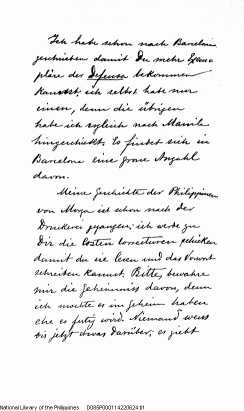 Ich habe schon nach Barcelona
geschrieben damit Du mehr Exem-
pläre des Defensa bekommen
kannst; ich selbst habe nur
einen, denn die übrigen
habe ich sogleich nach Manila
hingeschickt. Es findet sich in
Barcelona eine grose Anzahl
davon.
Meine Geschichte der Philippinen
von Morga ist schon nach der
Druckerei gegangen; ich werde zu
Dir die letzten correcturen schicken
damit du sie lesen und das Vorwort
schreiben kannst. Bitte, bewahre
mir die Geheimniss davon, denn
ich möchte es im geheim haben
ehe es fertig wird. Niemand weiss
bis jetzt etwas darüber; es giebt
National Library of the Philippines D086F00011422062481